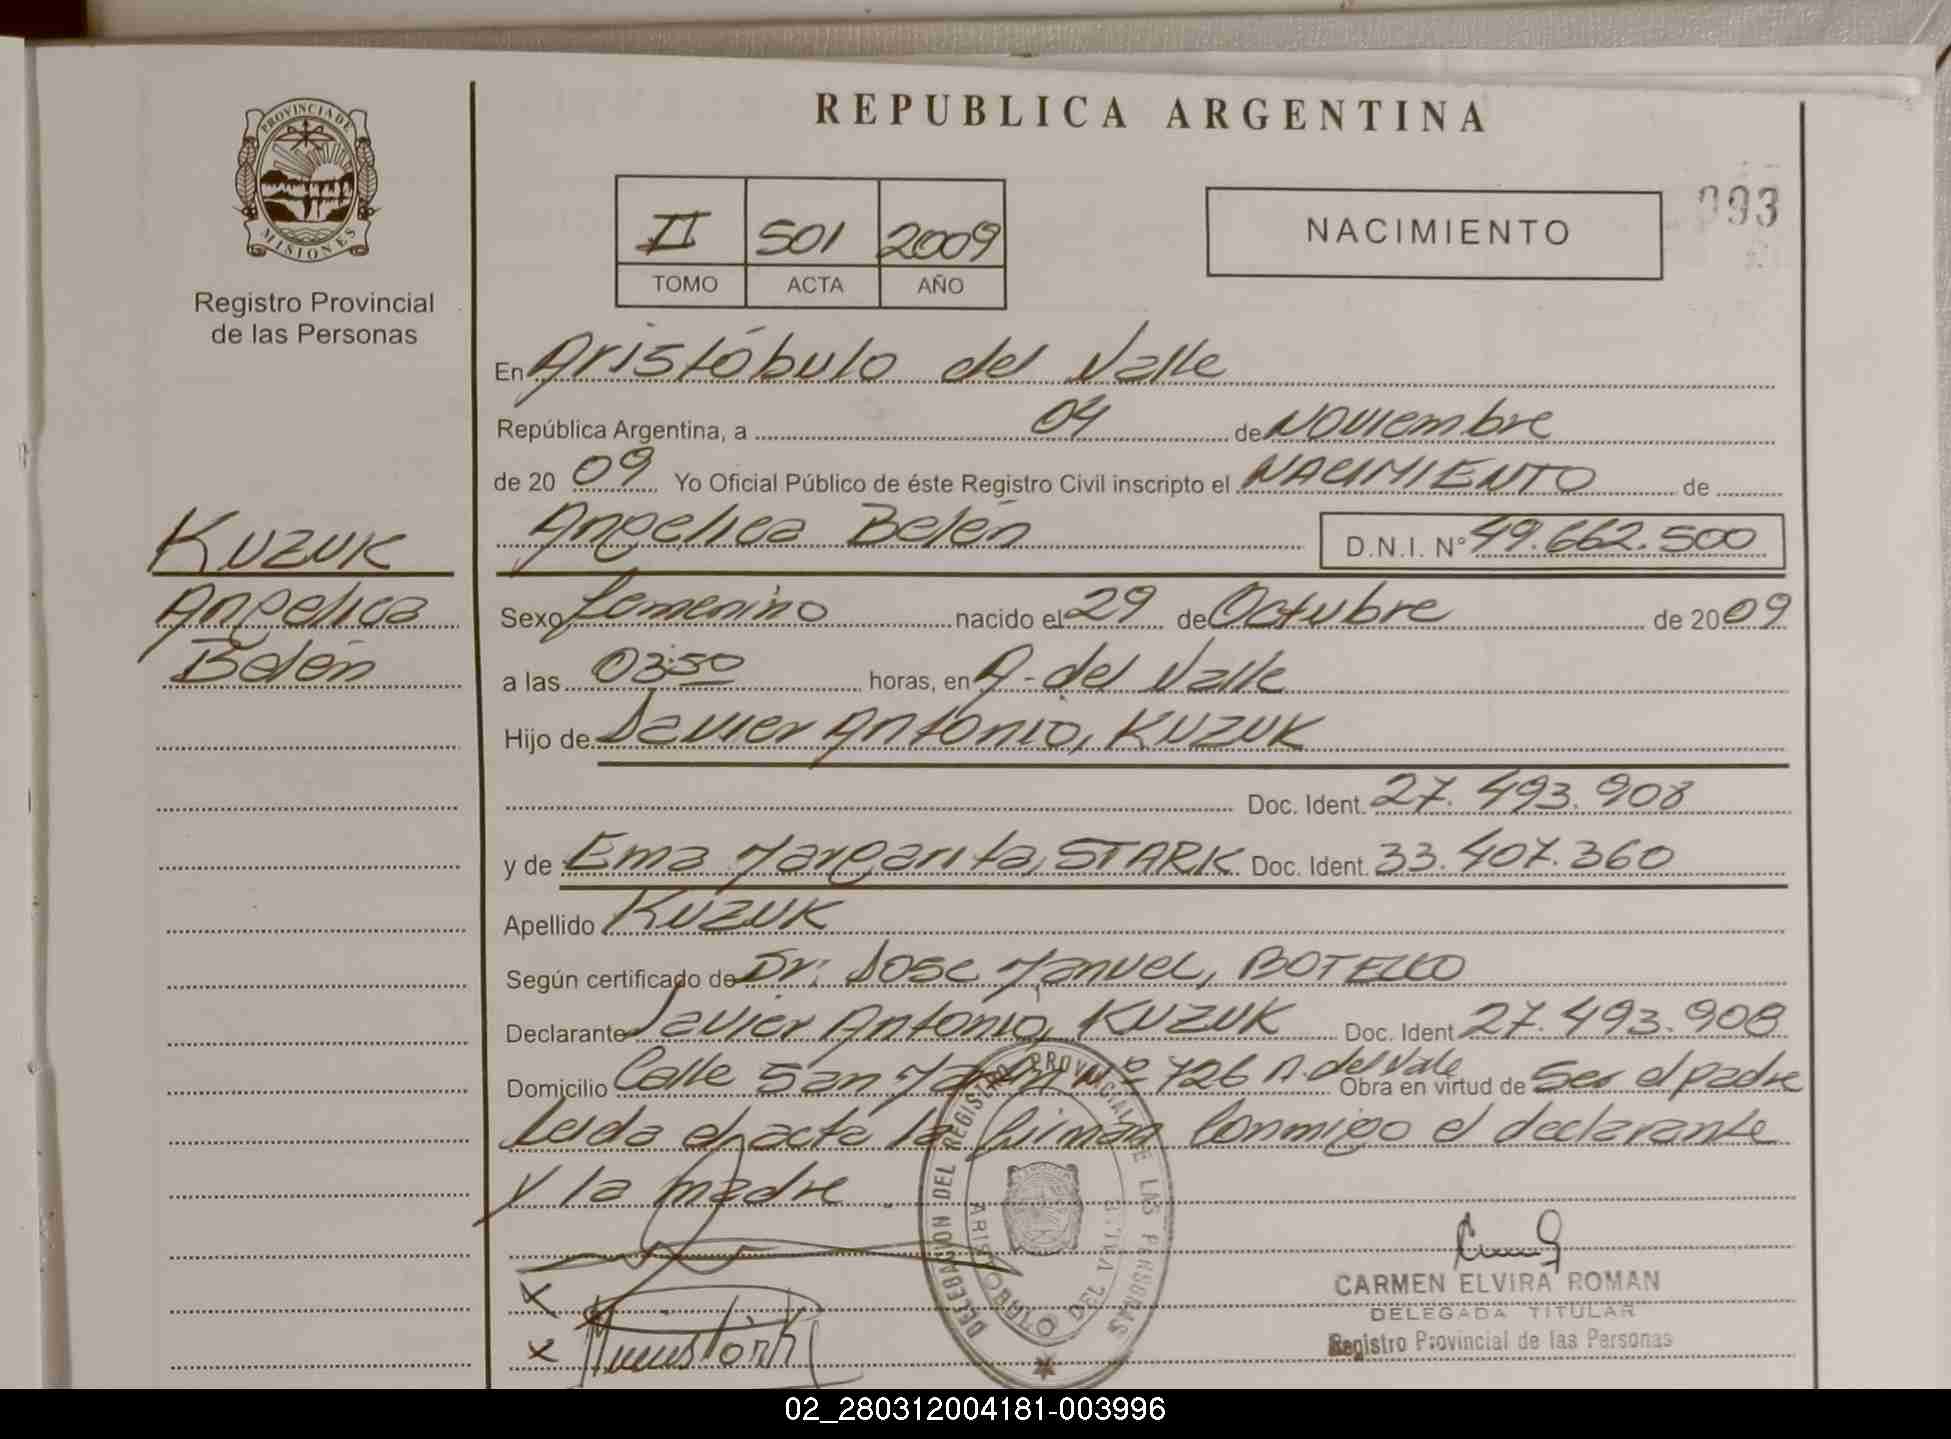 REPUBLICA ARGENTINA
PROVINCIA DE MISIONES
Registro Provincial
de las Personas
II 501 2009
TOMO ACTA AÑO
NACIMIENTO
093
En Aristóbulo del Valle
República Argentina, a 04 de Noviembre
de 2009 Yo Oficial Público de éste Registro Civil inscripto el NACIMIENTO de
Angelica Belén D.N.I. N° 49.662.500
KUZUK
Angelica
Belén
Sexo femenino nacido el 29 de Octubre de 2009
a las 03:50 horas, en A. del Valle
Hijo de Javier Antonio, KUZUK
Doc. Ident. 27.493.908
y de Ema Margarita, STARK Doc. Ident. 33.407.360
Apellido KUZUK
Según certificado de Dr: Jose Manuel, BOTELLO
Declarante Javier Antonio, KUZUK Doc. Ident 27.493.908
Domicilio Calle San Martin Nº 726 A. del Valle Obra en virtud de Ser el padre
Leida el acta la firman Conmigo el declarante
y la madre
DELEGACION DEL REGISTRO PROVINCIAL DE LAS PERSONAS
ARISTOBULO DEL VALLE
CARMEN ELVIRA ROMAN
DELEGADA TITULAR
Registro Provincial de las Personas
x
x
02_280312004181-003996